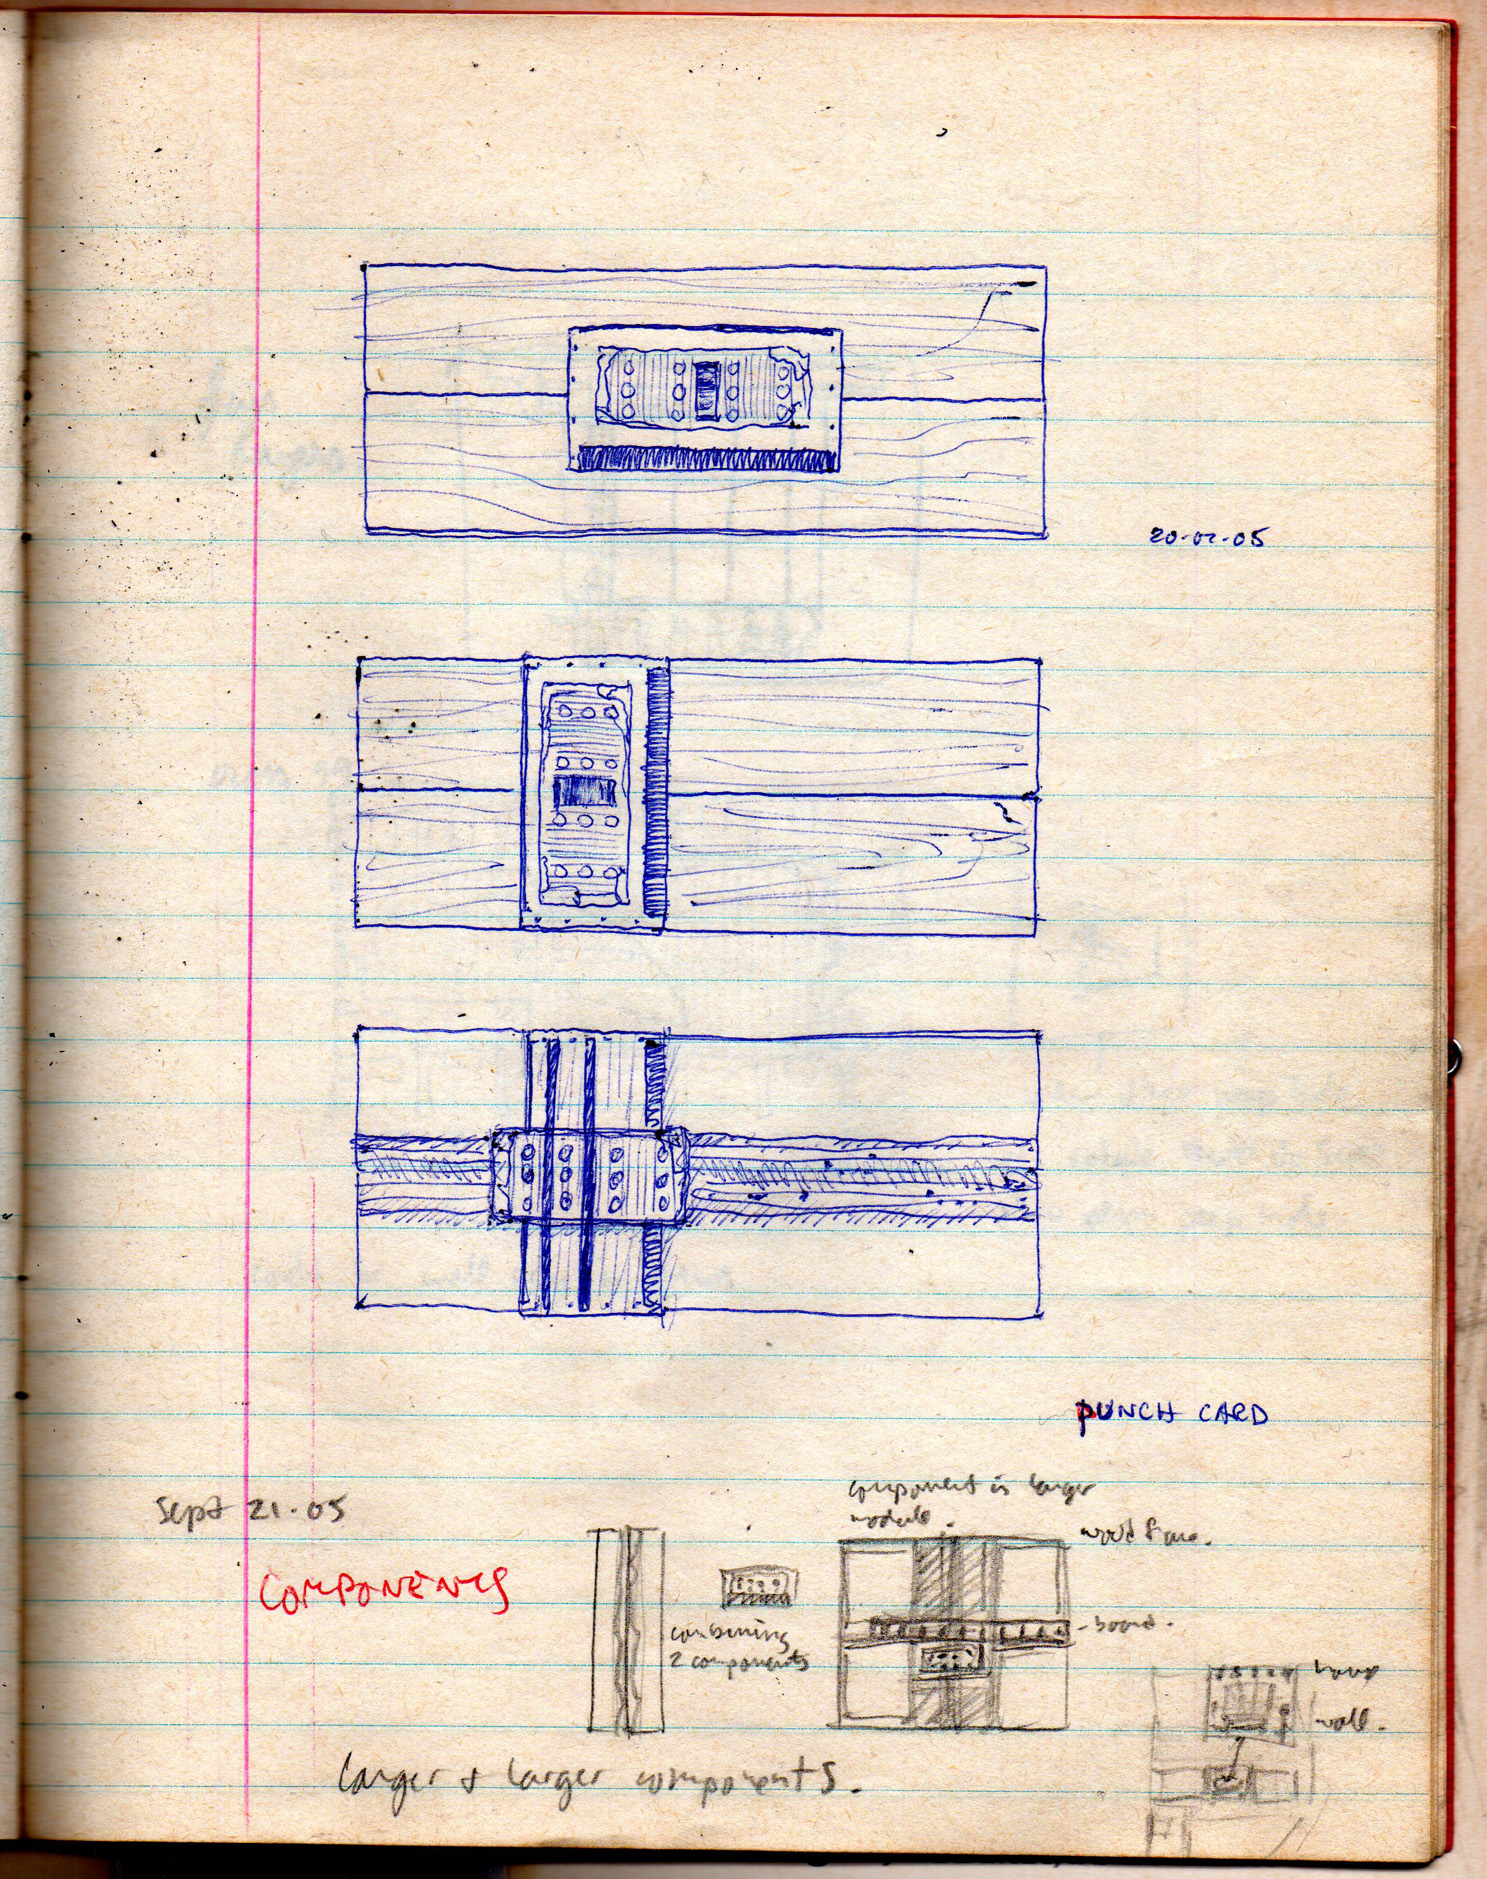 20-02-05
PUNCH CARD
Sept 21-05
COMPONENTS
component in larger
module.
wood
combining
2 components
- board.
wall.
larger & larger components.